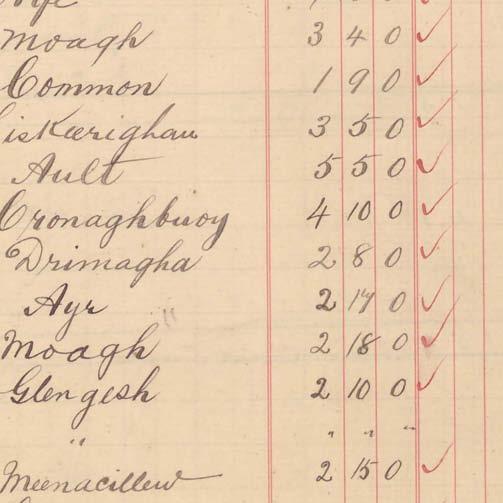 Moagh 3 4 0 ✓
Common 1 9 0 ✓
iskeerighan 3 5 0 ✓
Ault 5 5 0 ✓
Cronaghbuoy 4 10 0 ✓
Drimagha 2 8 0 ✓
Ayr 2 17 0 ✓
Moagh 2 18 0 ✓
Glengesh 2 10 0 ✓
" " " "
Meenacillew 2 15 0 ✓